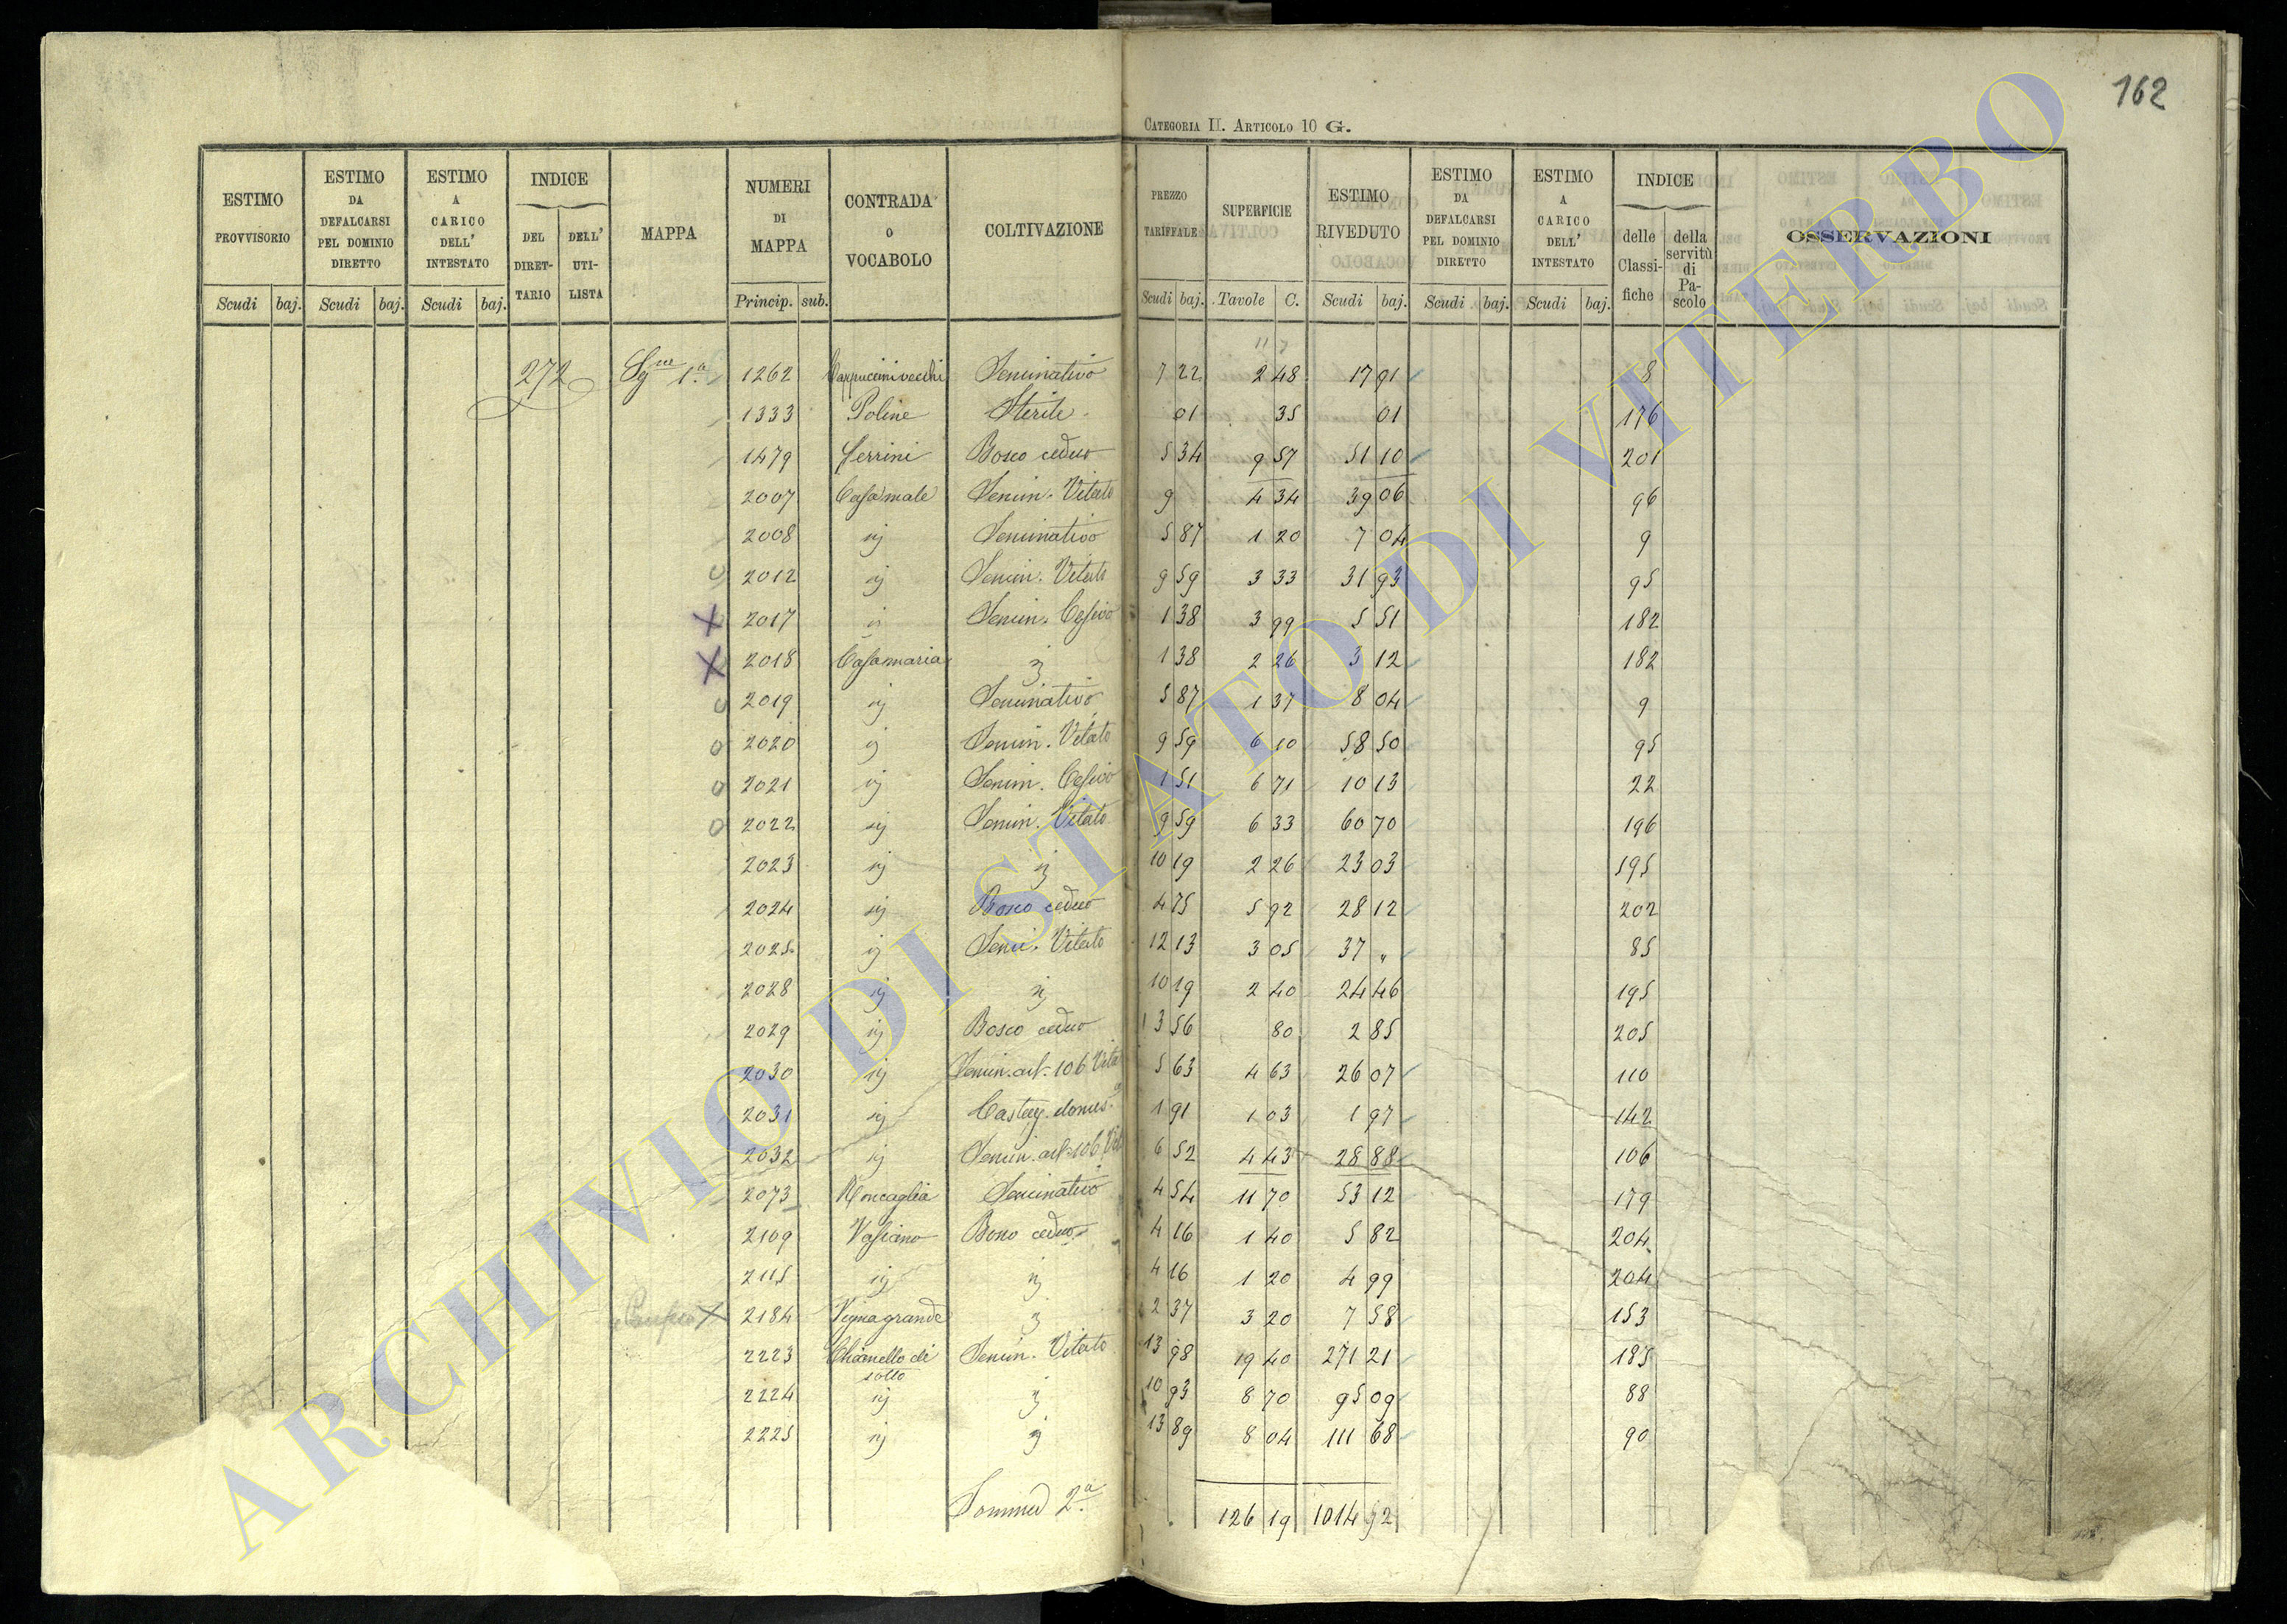 162
CATEGORIA II. ARTICOLO 10 G.
ESTIMO PROVVISORIO Scudi baj.
ESTIMO DA DEFALCARSI PEL DOMINIO DIRETTO Scudi baj.
ESTIMO A CARICO DELL' INTESTATO Scudi baj.
INDICE DEL DIRET-TARIO DELL' UTI-LISTA
MAPPA
NUMERI DI MAPPA Princip. sub.
CONTRADA o VOCABOLO
COLTIVAZIONE
PREZZO TARIFFALE Scudi baj.
SUPERFICIE Tavole C.
ESTIMO RIVEDUTO Scudi baj.
ESTIMO DA DEFALCARSI PEL DOMINIO DIRETTO Scudi baj.
ESTIMO A CARICO DELL' INTESTATO Scudi baj.
INDICE delle Classi-fiche della servitù di Pa-scolo
OSSERVAZIONI
272 1ª 1262 Cappuccini vecchi Seminativo 7 22 2 48 17 91 8
1333 Poline Sterile 01 35 01 176
1479 Ferrini Bosco ceduo 5 34 9 57 51 10 201
2007 Casamale Semin. Vitato 9 4 34 39 06 96
2008 ij Seminativo 5 87 1 20 7 04 9
2012 ij Semin. Vitato 9 59 3 33 31 93 95
X 2017 ij Semin. Cesivo 1 38 3 99 5 51 182
X 2018 Casamaria ij 1 38 2 26 3 12 182
2019 ij Seminativo 5 87 1 37 8 04 9
0 2020 ij Semin. Vitato 9 59 6 10 58 50 95
0 2021 ij Semin. Cesivo 1 51 6 71 10 13 22
0 2022 ij Semin. Vitato 9 59 6 33 60 70 196
2023 ij ij 10 19 2 26 23 03 195
2024 ij Bosco ceduo 4 75 5 92 28 12 202
2025 ij Semi. Vitato 12 13 3 05 37 „ 85
2028 ij ij 10 19 2 40 24 46 195
2029 ij Bosco ceduo 3 56 80 2 85 205
2030 ij Semin. 106 5 63 4 63 26 07 110
2031 ij Castag. domes. 1 91 1 03 1 97 142
2032 ij Semin. 106 6 52 4 43 28 88 106
2073 Roncaglia Seminativo 4 54 11 70 53 12 179
2109 Vasiano Bosco ceduo 4 16 1 40 5 82 204
2115 ij ij 4 16 1 20 4 99 204
X 2184 Vigna grande ij 2 37 3 20 7 58 153
2223 Chiamello di sotto Semin. Vitato 13 98 19 40 271 21 185
2224 ij ij 10 93 8 70 95 09 88
2225 ij ij 13 89 8 04 111 68 90
Somma 2ª 126 19 1014 92
ARCHIVIO DI STATO DI VITERBO